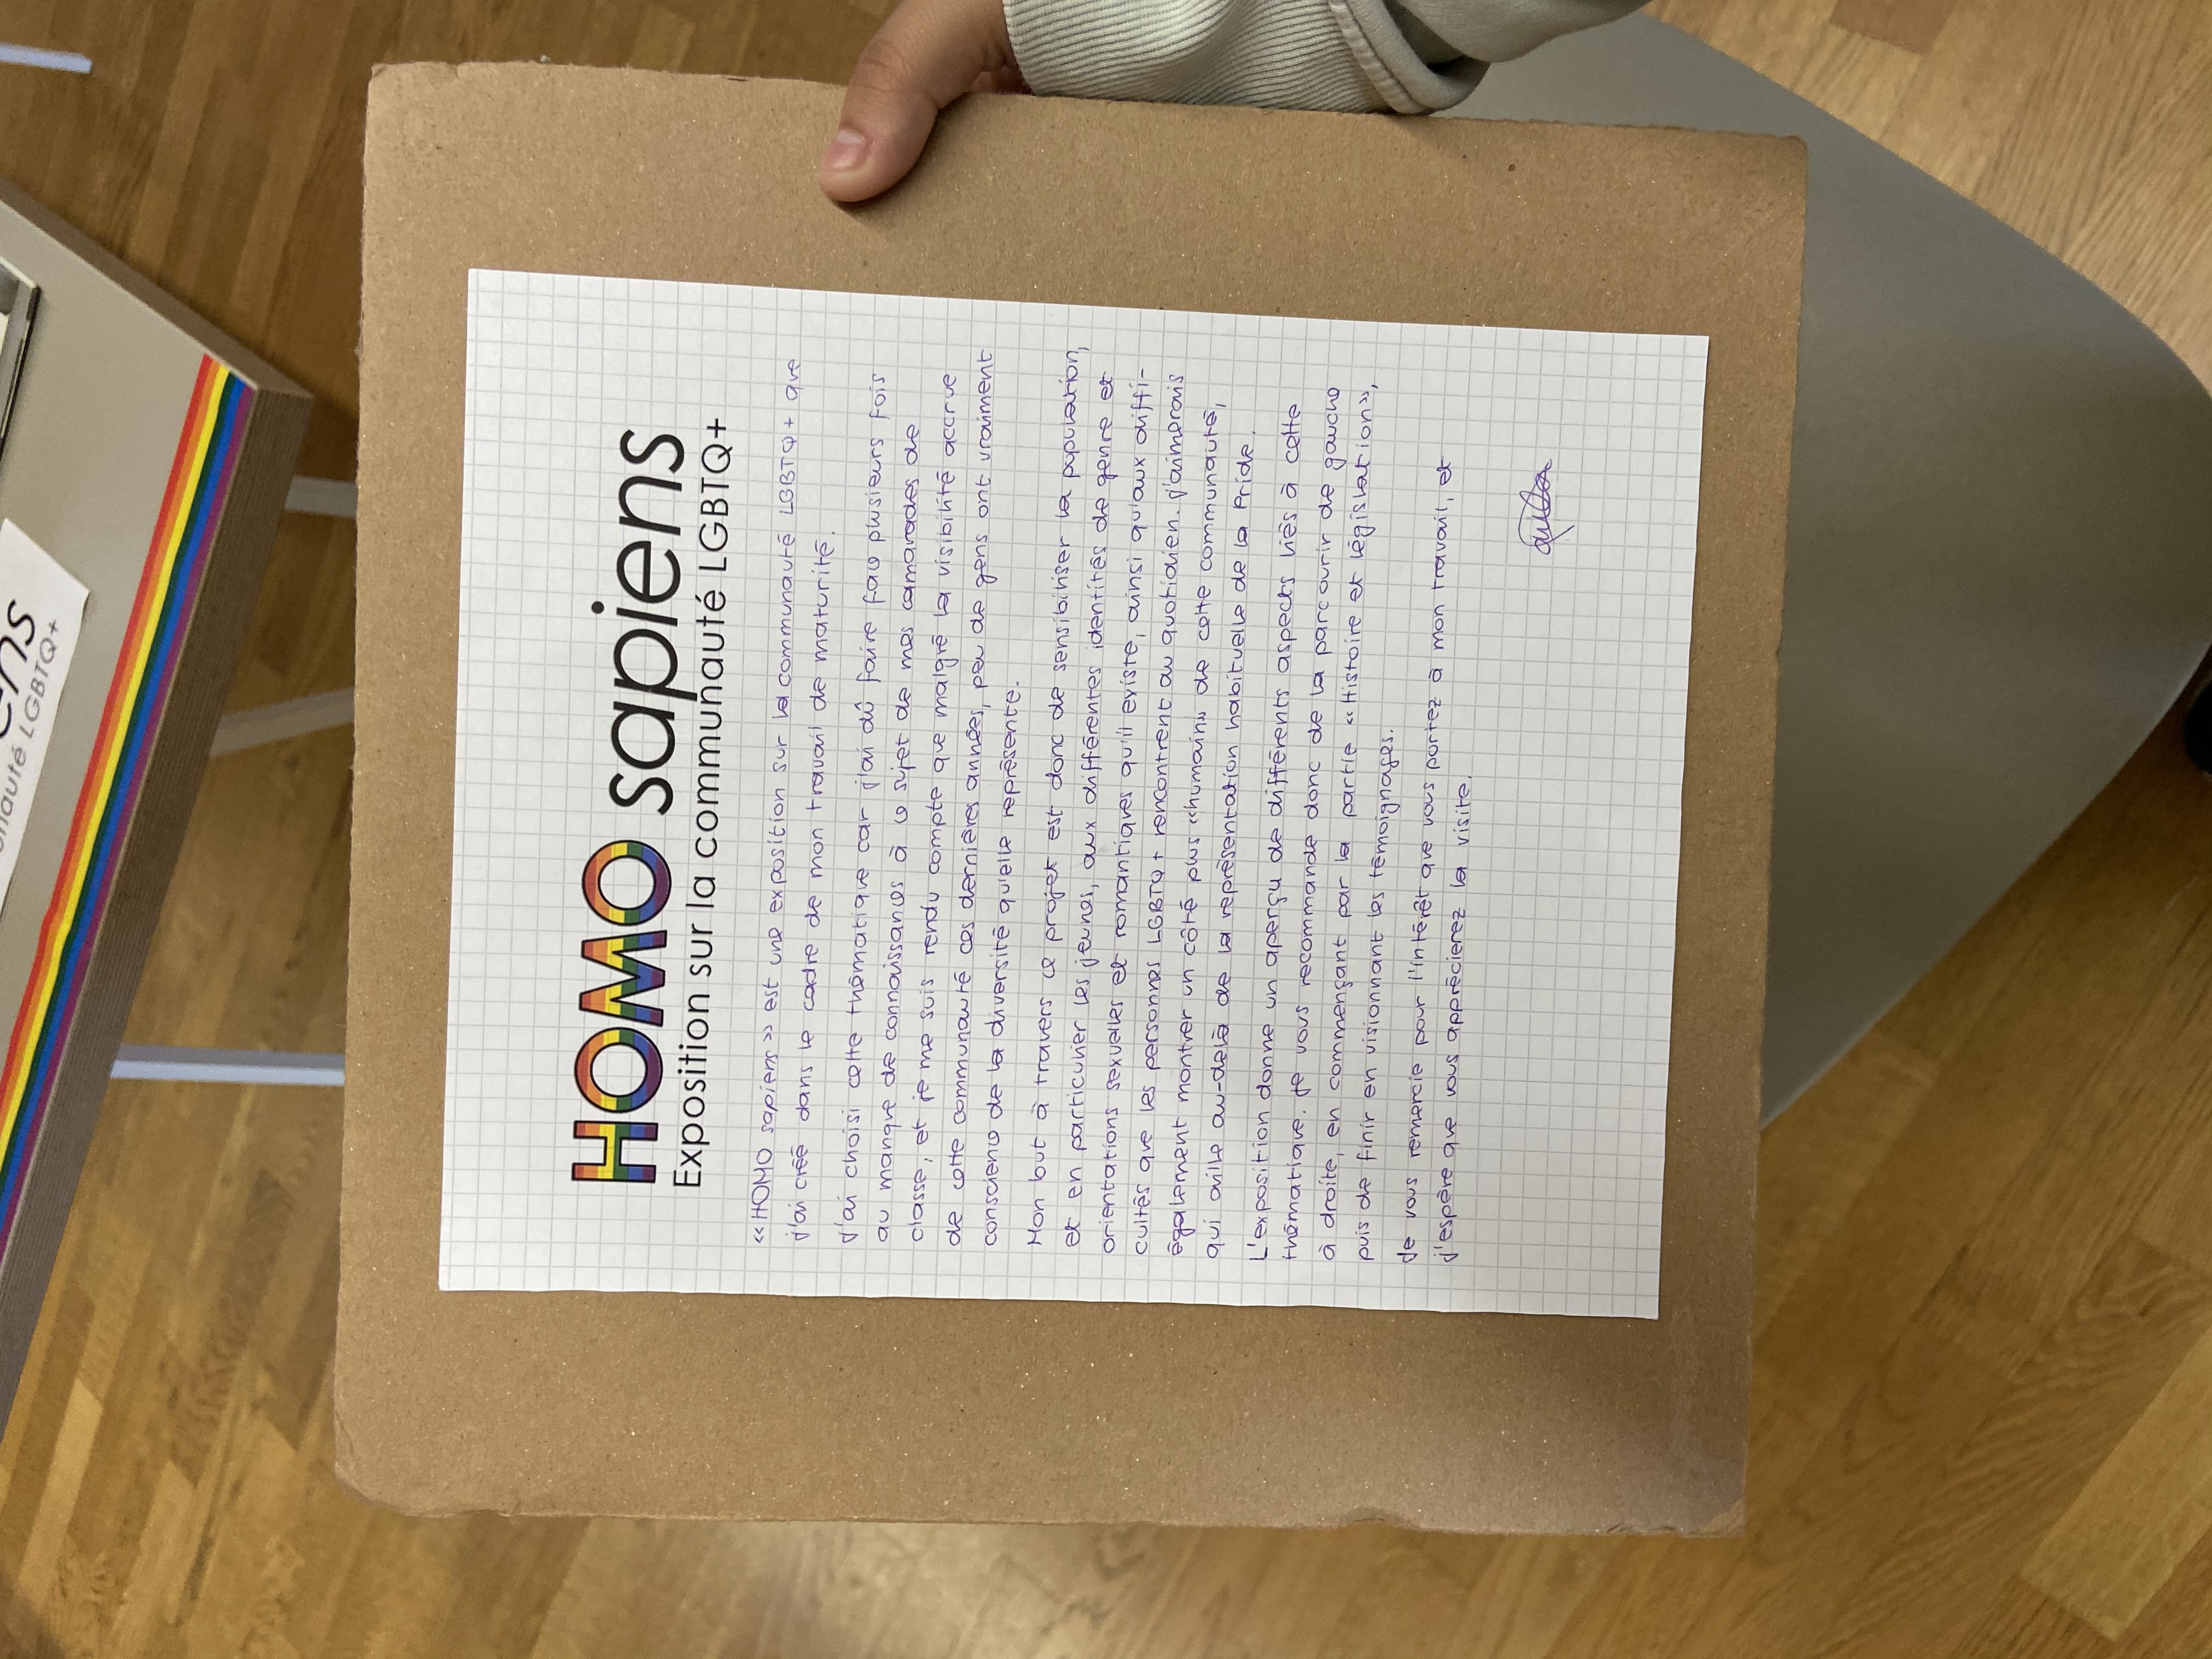 ens
nauté LGBTQ+
HOMO sapiens
Exposition sur la communauté LGBTQ+
«HOMO sapiens» est une exposition sur la communauté LGBTQ+ que
j'ai créé dans le cadre de mon travail de maturité.
J'ai choisi cette thématique car j'ai dû faire face plusieurs fois
au manque de connaissances à ce sujet de mes camarades de
classe, et je me suis rendu compte que malgré la visibilité accrue
de cette communauté ces dernières années, peu de gens ont vraiment
conscience de la diversité qu'elle représente.
Mon but à travers ce projet est donc de sensibiliser la population,
et en particulier les jeunes, aux différentes identités de genre et
orientations sexuelles et romantiques qu'il existe, ainsi qu'aux diffi-
cultés que les personnes LGBTQ+ rencontrent au quotidien. J'aimerais
également montrer un côté plus «humain» de cette communauté,
qui aille au-delà de la représentation habituelle de la Pride.
L'exposition donne un aperçu de différents aspects liés à cette
thématique. Je vous recommande donc de la parcourir de gauche
à droite, en commençant par la partie «Histoire et législation»,
puis de finir en visionnant les témoignages.
Je vous remercie pour l'intérêt que vous portez à mon travail, et
j'espère que vous apprécierez la visite.